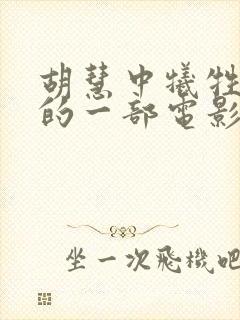 胡慧中犧牲
的一部電影
坐一次飛機吧